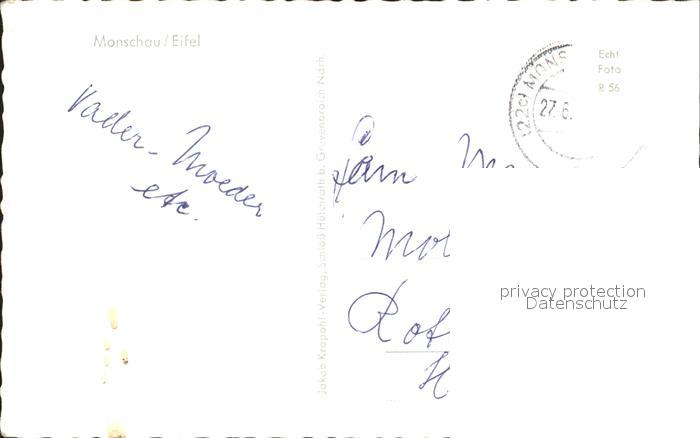 Monschau / Eifel
Vader - Moeder
etc.
Jakob Krapohl-Verlag, Schloß Hülchrath b. Grevenbroich Ndrh.
(22c) MONS
27.6.
Echt
Foto
R 56
Fam
privacy protection
Datenschutz